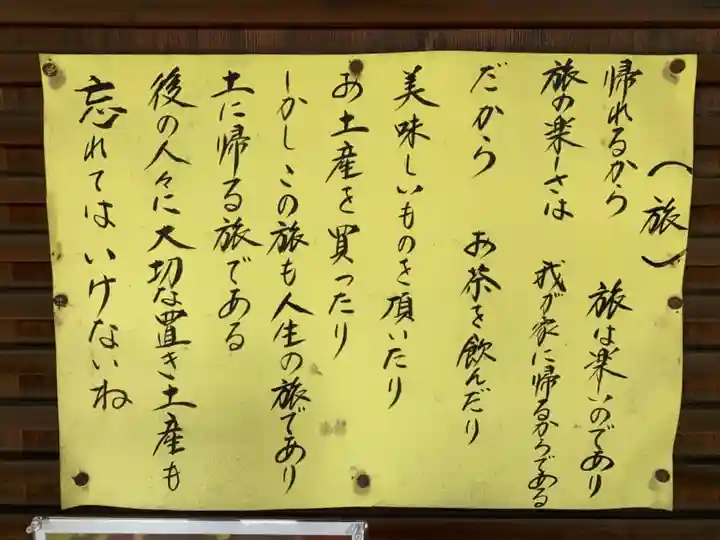 （旅）
帰れるから 旅は楽しいのであり
旅の楽しさは 我が家に帰るからである
だから お茶を飲んだり
美味しいものを頂いたり
お土産を買ったり
しかしこの旅も人生の旅であり
土に帰る旅である
後の人々に大切な置き土産も
忘れてはいけないね